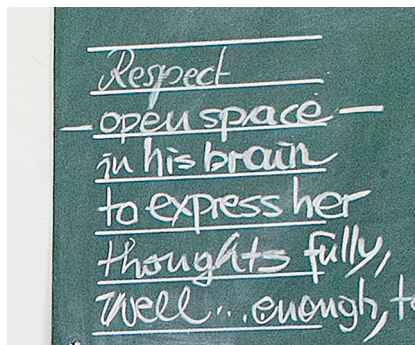 Respect
– open space –
in his brain
to express her
thoughts fully,
Well... enough, to